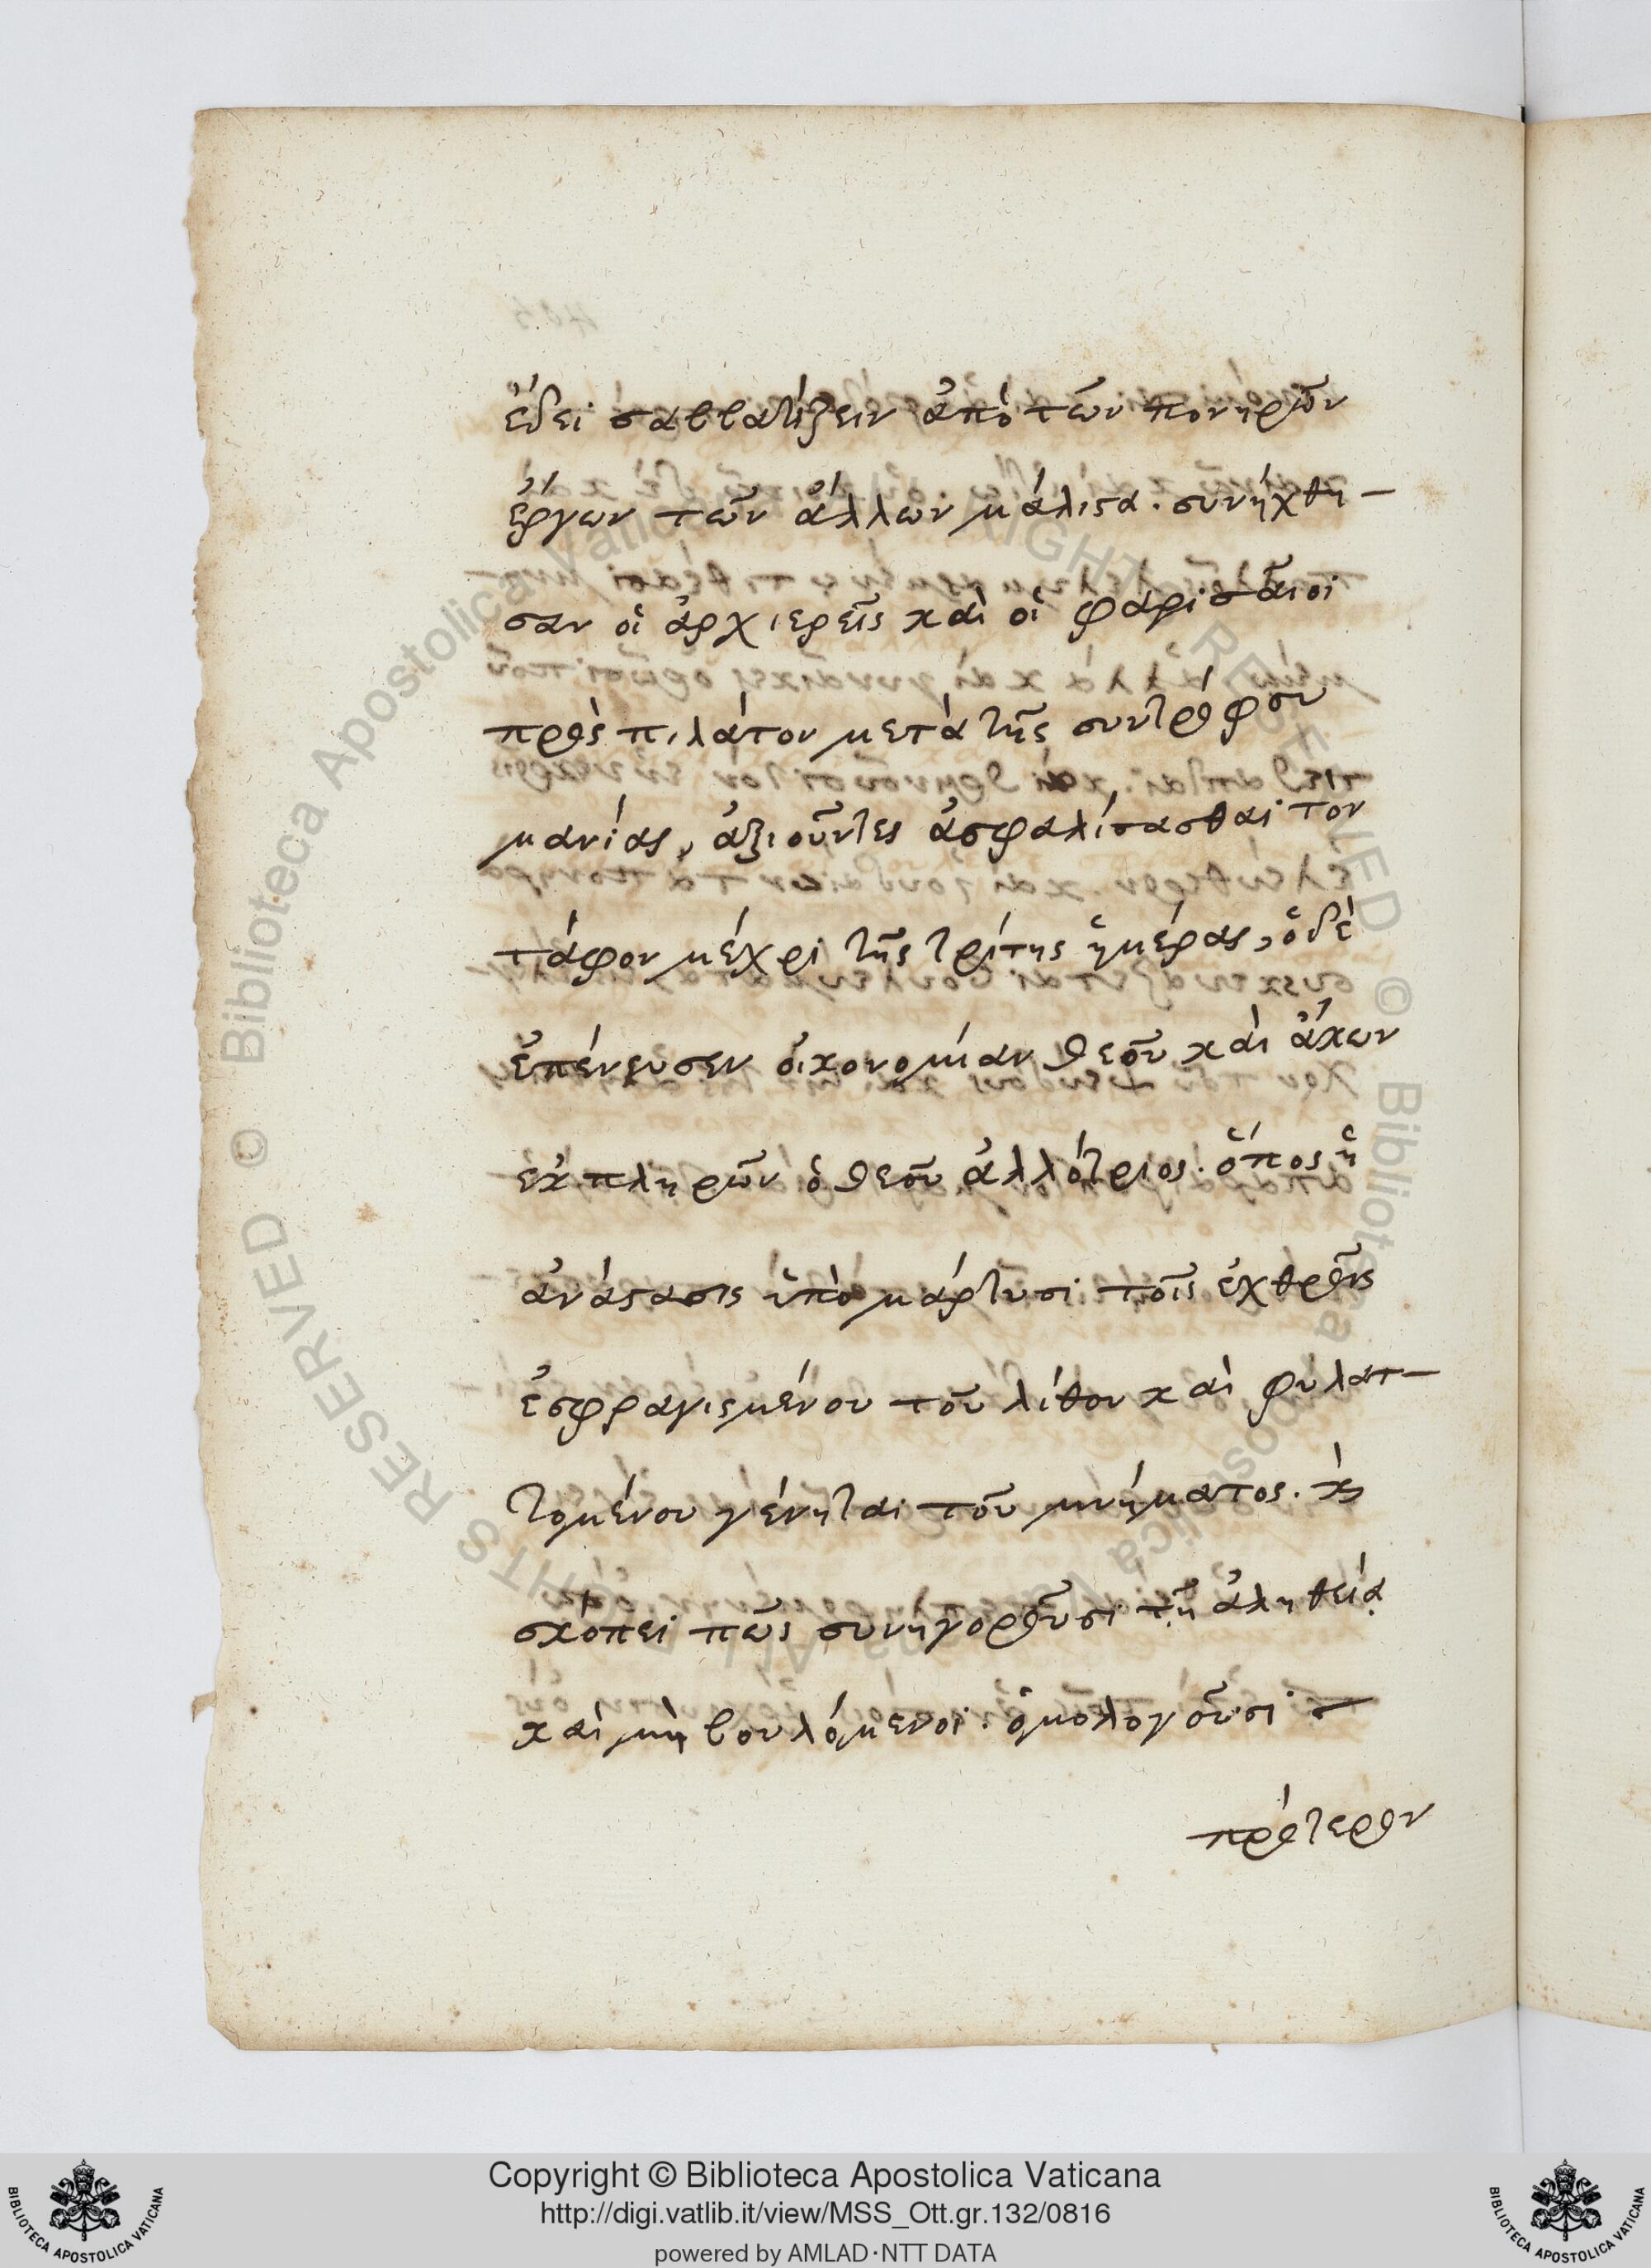 ἔδει σαββατίζειν ἀπὸ τῶν πονηρῶν
ἔργων τῶν ἄλλων μάλιστα. συνήχθη-
σαν οἱ ἀρχιερεῖς καὶ οἱ φαρισαῖοι
πρὸς πιλάτον μετὰ τῆς συντρόφου
μανίας, ἀξιοῦντες ἀσφαλίσασθαι τὸν
τάφον μέχρι τῆς τρίτης ἡμέρας, ὁ δὲ
ἐπένευσεν οἰκονομίαν θεοῦ καὶ ἄκων
ἐκπληρῶν ὁ θεοῦ ἀλλότριος. ὅπος ἡ
ἀνάστασις ὑπὸ μάρτυσι τοῖς ἐχθροῖς
ἐσφραγισμένου τοῦ λίθου καὶ φυλατ-
τομένου γένηται τοῦ μνήματος. ϗ
σκόπει πῶς συνηγοροῦσι τῇ ἀληθείᾳ
καὶ μὴ βουλόμενοι. ὁμολογοῦσι
πρότερον
Copyright © Biblioteca Apostolica Vaticana
http://digi.vatlib.it/view/MSS_Ott.gr.132/0816
powered by AMLAD·NTT DATA
BIBLIOTECA APOSTOLICA VATICANA
BIBLIOTECA APOSTOLICA VATICANA